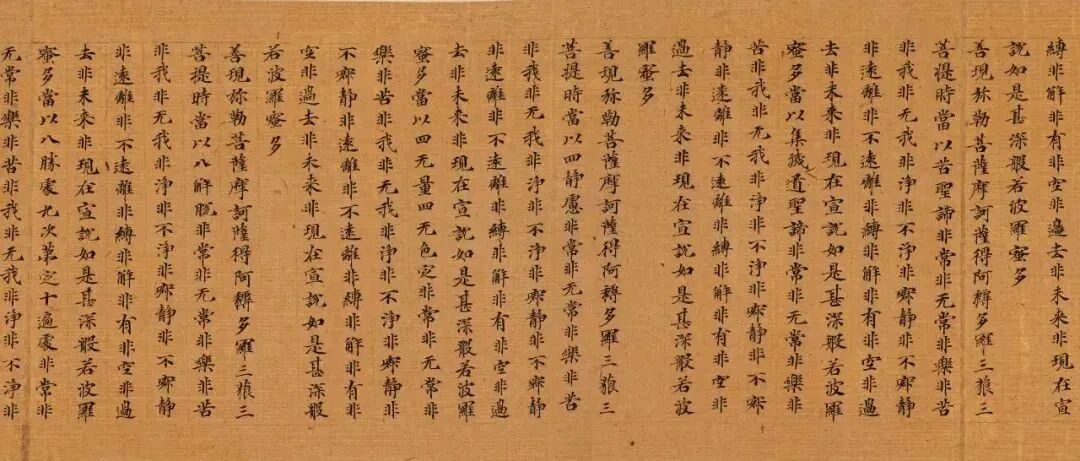 縛非解非有非空非過去非未來非現在宣
說如是甚深般若波羅蜜多
善現弥勒菩薩摩訶薩得阿耨多羅三藐三
菩提時當以苦聖諦非常非无常非樂非苦
非我非无我非淨非不淨非寂靜非不寂靜
非遠離非不遠離非縛非解非有非空非過
去非未來非現在宣說如是甚深般若波羅
蜜多當以集滅道聖諦非常非无常非樂非
苦非我非无我非淨非不淨非寂靜非不寂
靜非遠離非不遠離非縛非解非有非空非
過去非未來非現在宣說如是甚深般若波
羅蜜多
善現弥勒菩薩摩訶薩得阿耨多羅三藐三
菩提時當以四靜慮非常非无常非樂非苦
非我非无我非淨非不淨非寂靜非不寂靜
非遠離非不遠離非縛非解非有非空非過
去非未來非現在宣說如是甚深般若波羅
蜜多當以四无量四无色定非常非无常非
樂非苦非我非无我非淨非不淨非寂靜非
不寂靜非遠離非不遠離非縛非解非有非
空非過去非未來非現在宣說如是甚深般
若波羅蜜多
善現弥勒菩薩摩訶薩得阿耨多羅三藐三
菩提時當以八解脫非常非无常非樂非苦
非我非无我非淨非不淨非寂靜非不寂靜
非遠離非不遠離非縛非解非有非空非過
去非未來非現在宣說如是甚深般若波羅
蜜多當以八勝處九次第定十遍處非常非
无常非樂非苦非我非无我非淨非不淨非